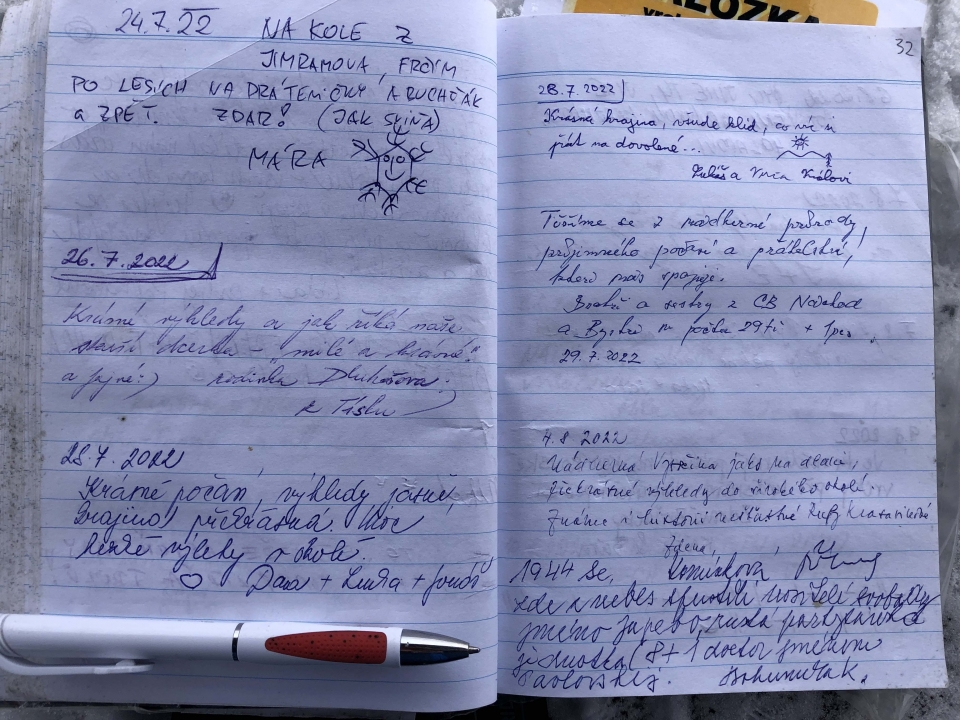 24.7.22 NA KOLE Z
JIMRAMOVA, FRČÍM
PO LESÍCH NA DRÁTENIČKY A RUCHŤÁK
a ZPĚT. ZDAR! (JAK SVIŇA)
MÁRA
26.7.2022
Krásné výhledy a jak říká naše
starší dcerka - "milé a krásné"
a fajné :) rodinka Dluhošova
z Tísku
28.7.2022
Krásné počasí, výhledy jasné,
krajina překrásná. Moc
hezké výlety v okolí.
Dan + Linda + Jonáš
ALOŽKA
32
28.7.2022
Krásná krajina, všude klid, co víc si
přát na dovolené...
Lukáš a Královi
Těšíme se z nádherné přírody,
příjemného počasí a přátelství,
které nás spojuje.
Bratři a sestry z CB Náchod
a Bystré v počtu 29ti + 1pes.
29.7.2022
4.8 2022
Nádherná Vysočina jako na dlani,
překrásné výhledy do širokého okolí.
Známe i historii nešťastné
1944 se,
zde z nebes spustili nositelé svobody
jméno
jednotka (8 + 1 doctor jménem
Pavlovskij. Bohumír K.